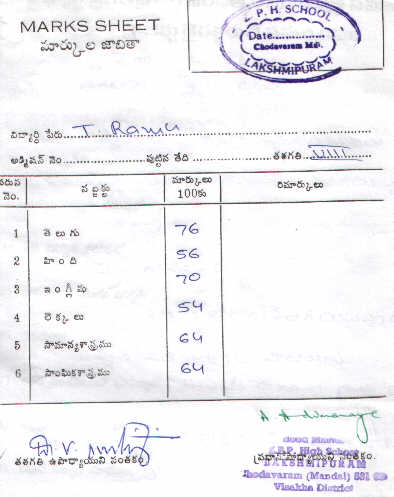 MARKS SHEET
మార్కుల జాబితా
Z. P. H. SCHOOL
Date................
Chodavaram Mdl.
LAKSHMIPURAM
విద్యార్థి పేరు..... T. Ramu
అడ్మిషన్ నెం..................... పుట్టిన తేది ........................ తరగతి VIII
వరుస నెం. సబ్జక్టు మార్కులు 100కు రిమార్కులు
1 తెలుగు 76
2 హింది 56
3 ఇంగ్లీషు 70
4 లెక్కలు 54
5 సామాన్యశాస్త్రము 64
6 సాంఘికశాస్త్రము 64
తరగతి ఉపాధ్యాయుని సంతకం.
ప్రధానోపాధ్యాయుని సంతకం.
Z.P.P. High School
LAKSHMIPURAM
Chodavaram (Mandal) 531
Visakha District